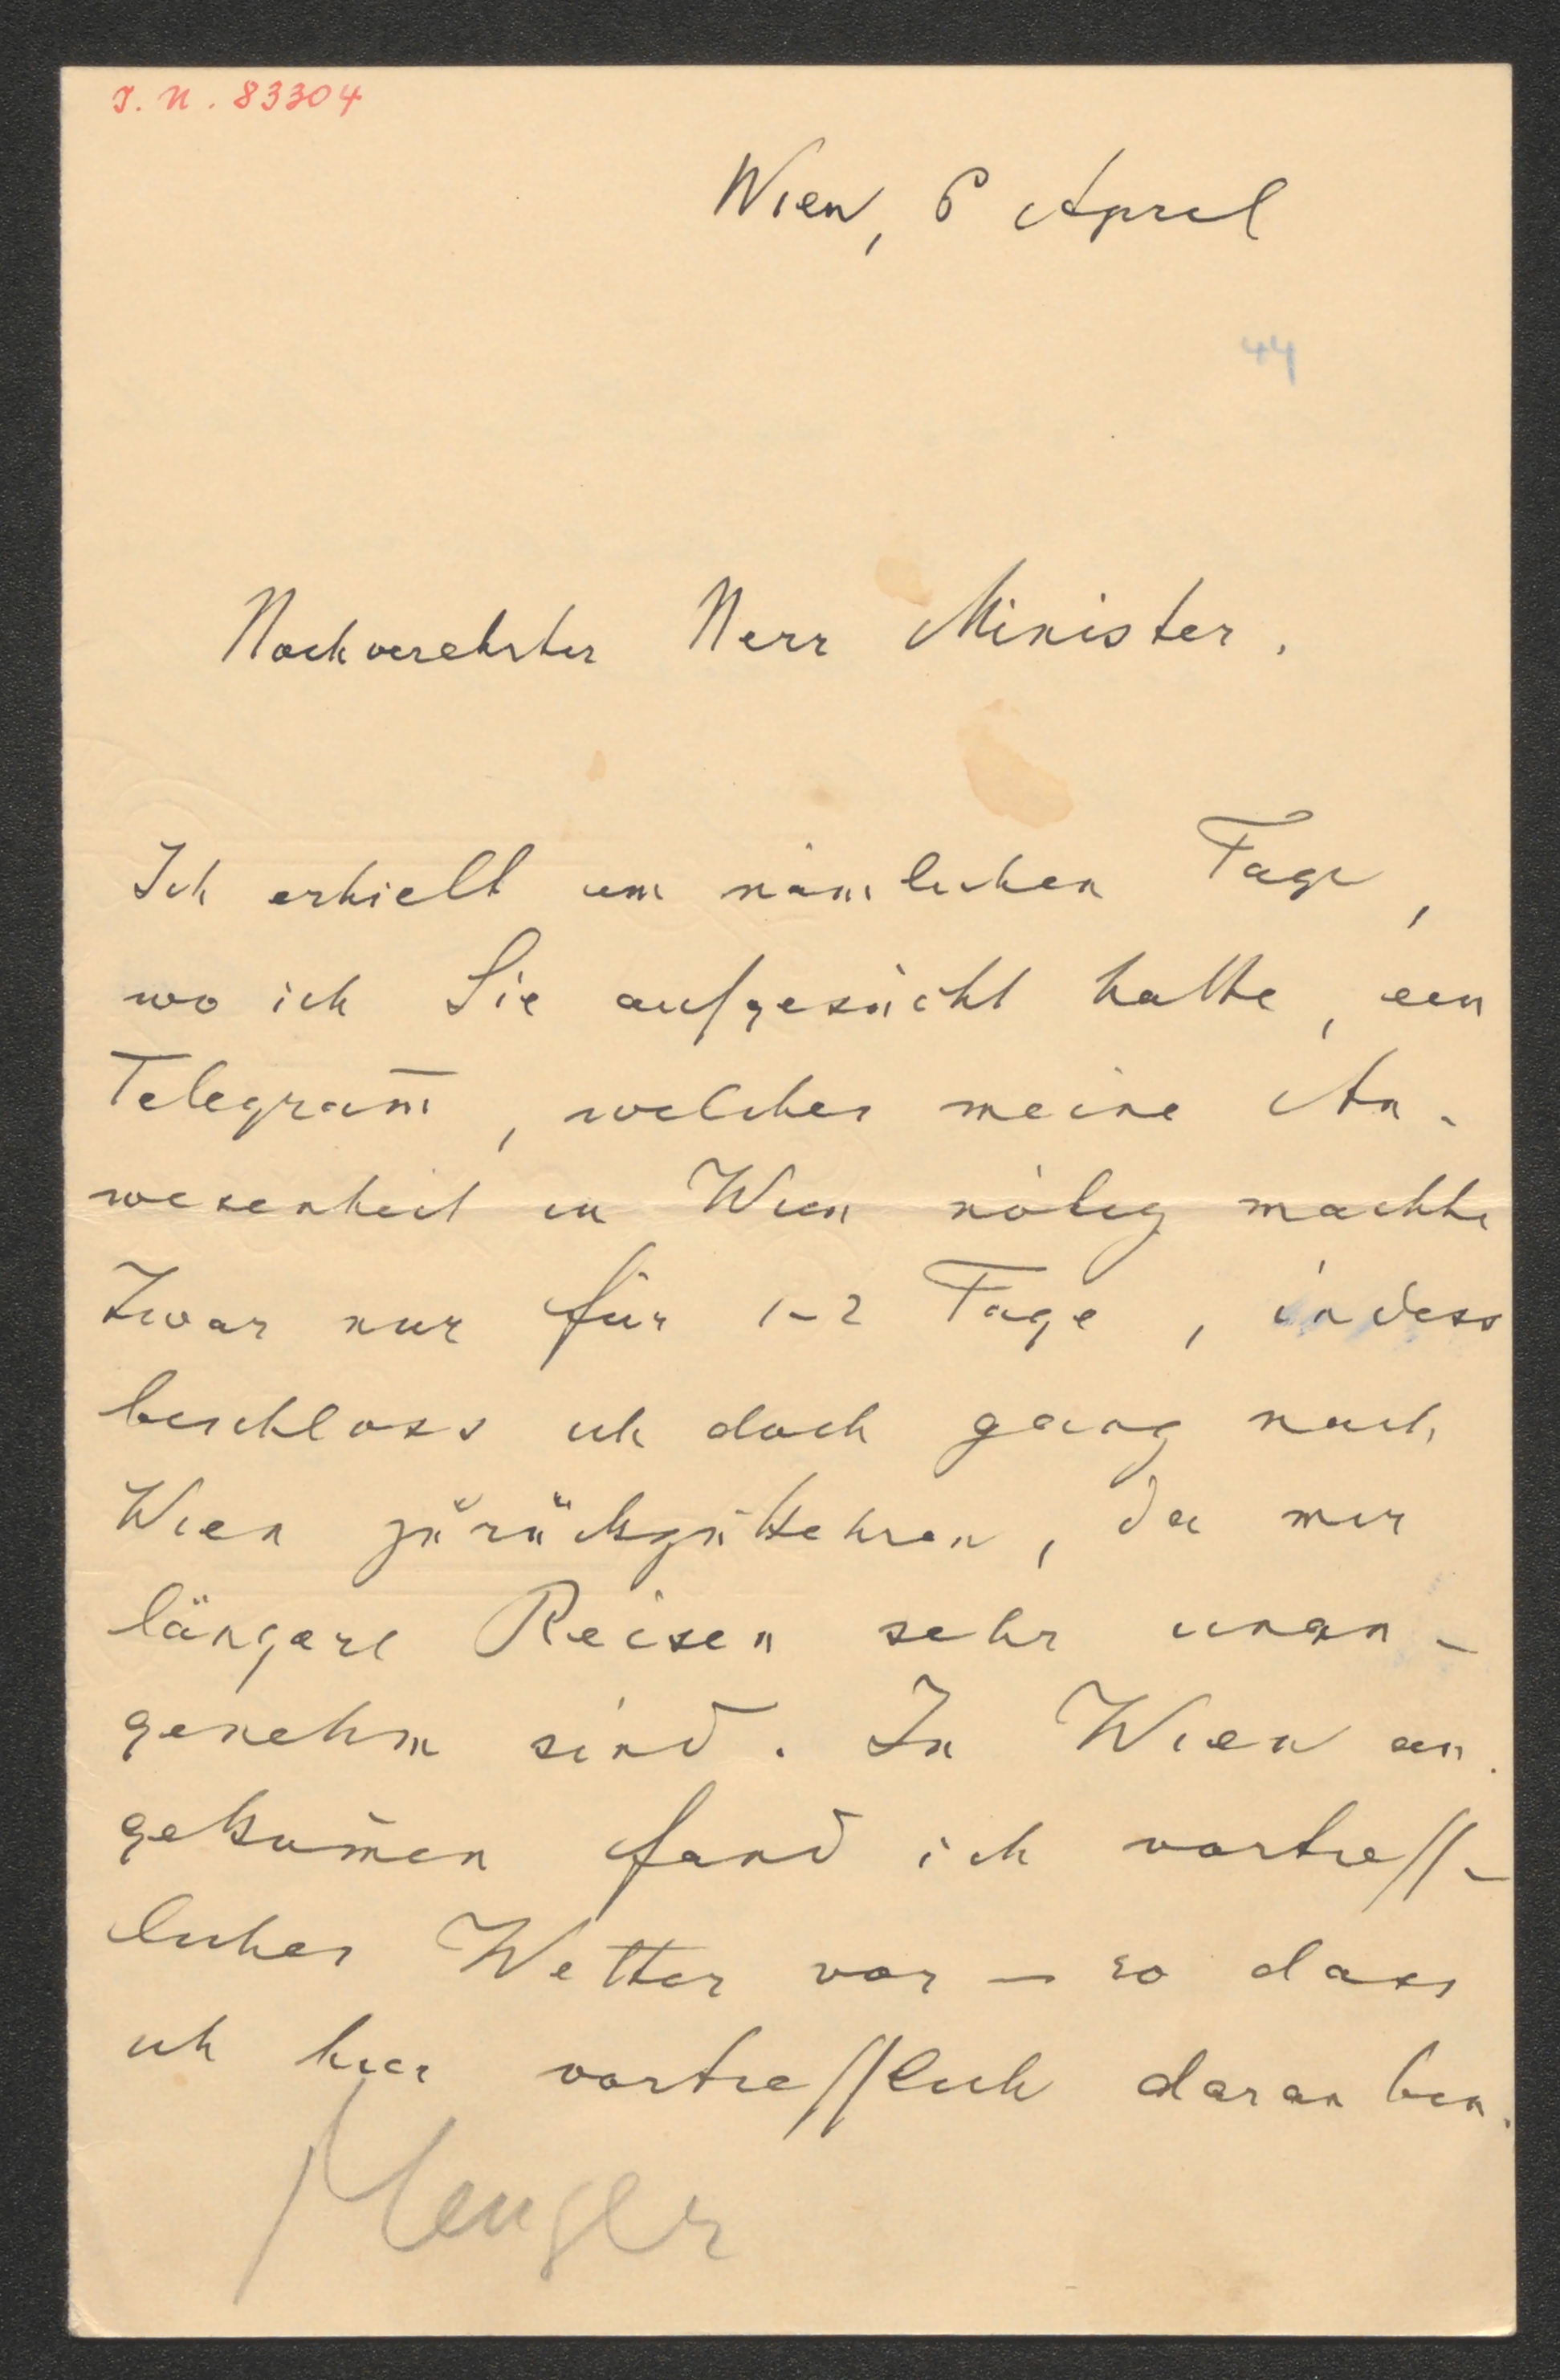 I. N. 83304
Wien, 6 April
44
Hochverehrter Herr Minister.
Ich erhielt am nämlichen Tage,
wo ich Sie aufgesucht hatte, ein
Telegram̅, welches meine An-
wesenheit in Wien nötig machte
Zwar nur für 1-2 Tage, indess
beschloss ich doch ganz nach
Wien zurückzukehren, da mir
längere Reisen sehr unan-
genehm sind. In Wien an-
gekom̅en fand ich vortreff-
liches Wetter vor – so dass
ich hier vortrefflich daran bin.
Menger